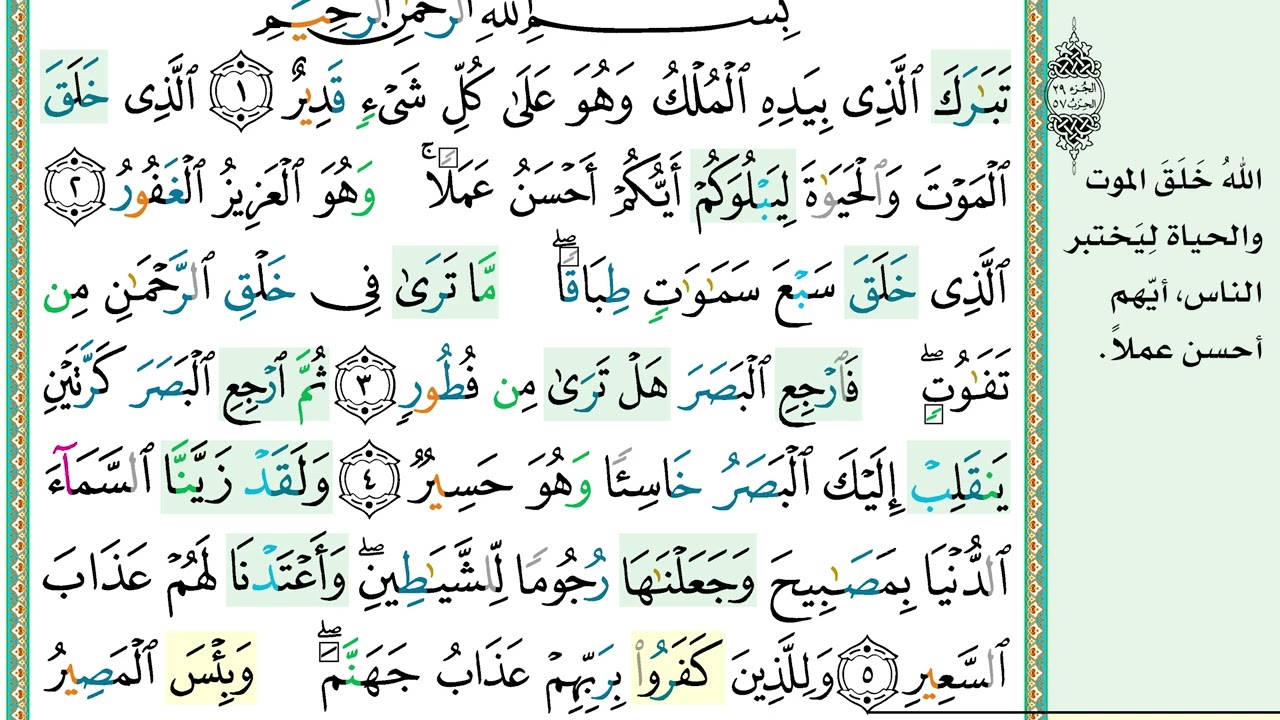 بِسْمِ اللَّهِ الرَّحْمَٰنِ الرَّحِيمِ
تَبَٰرَكَ ٱلَّذِى بِيَدِهِ ٱلْمُلْكُ وَهُوَ عَلَىٰ كُلِّ شَىْءٍ قَدِيرٌ ١ ٱلَّذِى خَلَقَ
ٱلْمَوْتَ وَٱلْحَيَوٰةَ لِيَبْلُوَكُمْ أَيُّكُمْ أَحْسَنُ عَمَلًا ۚ وَهُوَ ٱلْعَزِيزُ ٱلْغَفُورُ ٢
ٱلَّذِى خَلَقَ سَبْعَ سَمَٰوَٰتٍ طِبَاقًا ۖ مَّا تَرَىٰ فِى خَلْقِ ٱلرَّحْمَٰنِ مِن
تَفَٰوُتٍ ۖ فَٱرْجِعِ ٱلْبَصَرَ هَلْ تَرَىٰ مِن فُطُورٍ ٣ ثُمَّ ٱرْجِعِ ٱلْبَصَرَ كَرَّتَيْنِ
يَنقَلِبْ إِلَيْكَ ٱلْبَصَرُ خَاسِئًا وَهُوَ حَسِيرٌ ٤ وَلَقَدْ زَيَّنَّا ٱلسَّمَآءَ
ٱلدُّنْيَا بِمَصَٰبِيحَ وَجَعَلْنَٰهَا رُجُومًا لِّلشَّيَٰطِينِ ۖ وَأَعْتَدْنَا لَهُمْ عَذَابَ
ٱلسَّعِيرِ ٥ وَلِلَّذِينَ كَفَرُوا۟ بِرَبِّهِمْ عَذَابُ جَهَنَّمَ ۖ وَبِئْسَ ٱلْمَصِيرُ
الجُزء ٢٩
الحِزب ٥٧
اللهُ خَلَقَ الموت
والحياة لِيَختبر
الناس، أيّهم
أحسن عملاً.